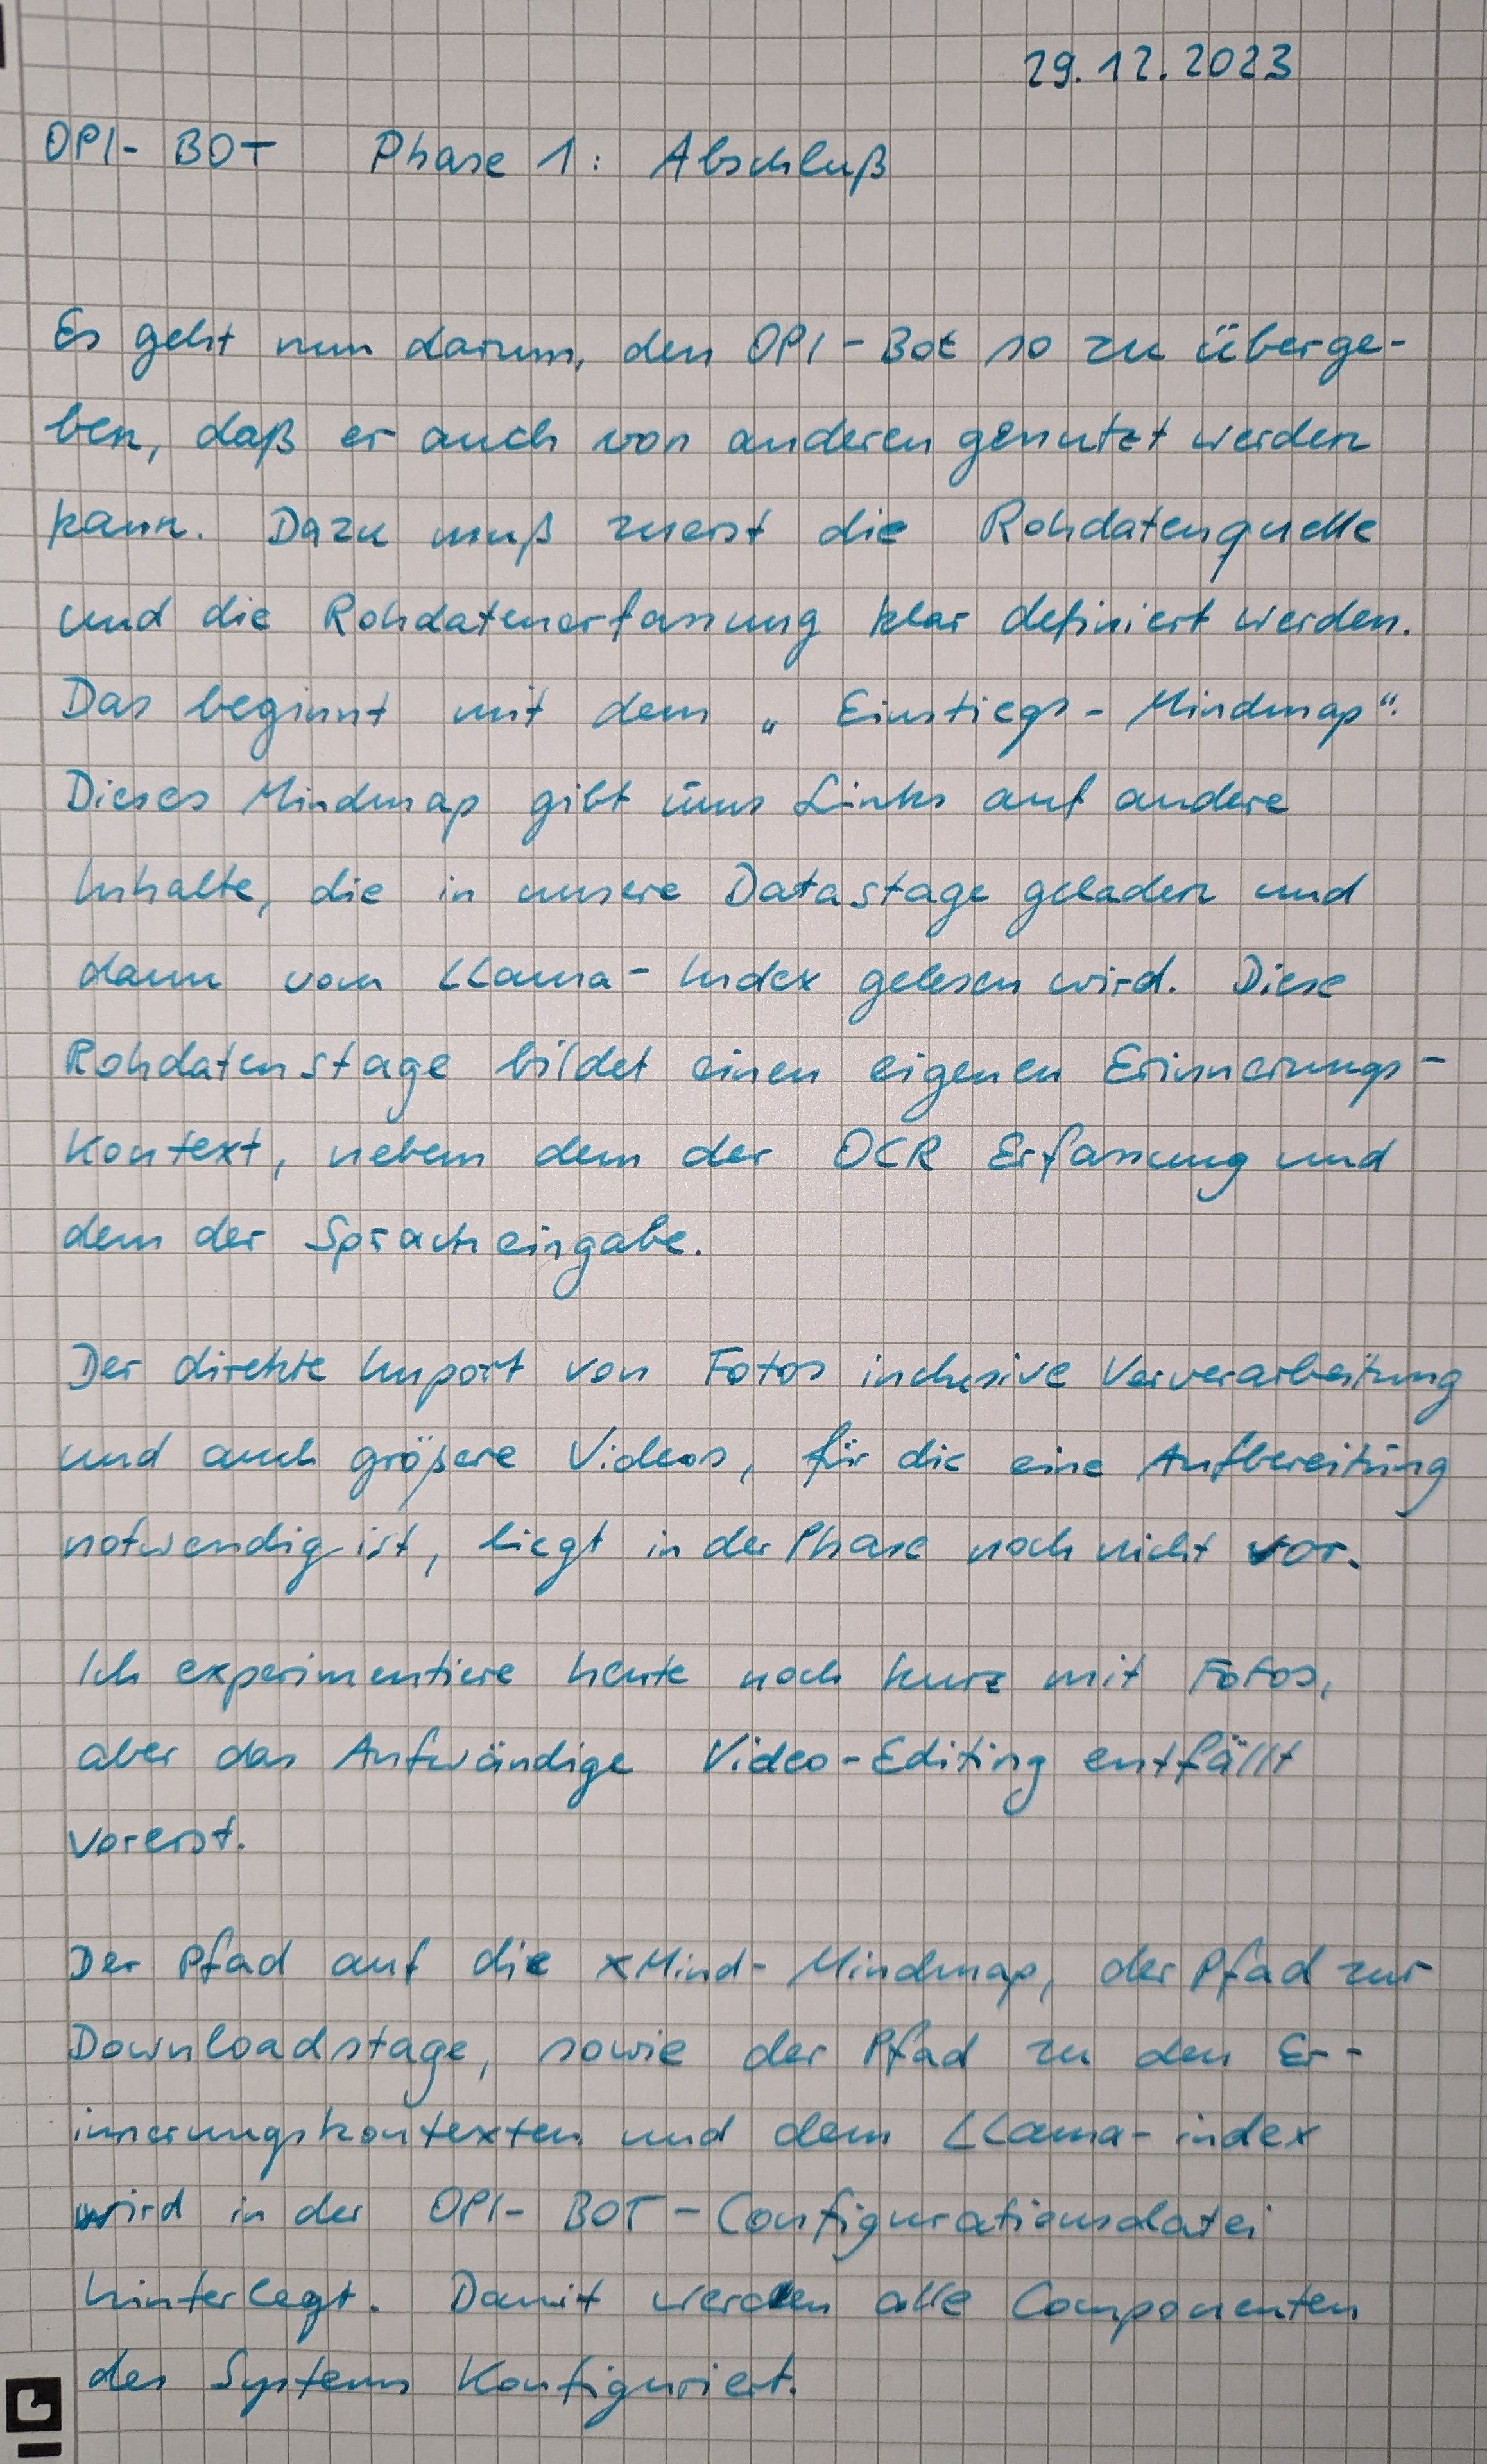 29.12.2023
OPI-BOT Phase 1: Abschluß
Es geht nun darum, den OPI-Bot so zu überge-
ben, daß er auch von anderen genutzt werden
kann. Dazu muß zuerst die Rohdatenquelle
und die Rohdatenerfassung klar definiert werden.
Das beginnt mit dem „Einstiegs-Mindmap“.
Dieses Mindmap gibt uns Links auf andere
Inhalte, die in unsere Datastage geladen und
dann vom LLama-Index gelesen wird. Diese
Rohdatenstage bildet einen eigenen Erinnerungs-
Kontext, nebem dem der OCR Erfassung und
dem der Spracheingabe.
Der direkte Import von Fotos inclusive Vorverarbeitung
und auch größere Videos, für die eine Aufbereitung
notwendig ist, liegt in der Phase noch nicht vor.
Ich experimentiere heute noch kurz mit Fotos,
aber das Aufwändige Video-Editing entfällt
vorerst.
Der Pfad auf die xMind-Mindmap, der Pfad zur
Downloadstage, sowie der Pfad zu den Er-
innerungskontexten und dem LLama-index
wird in der OPI-BOT-Configurationsdatei
hinterlegt. Damit werden alle Componenten
des Systems Konfiguriert.